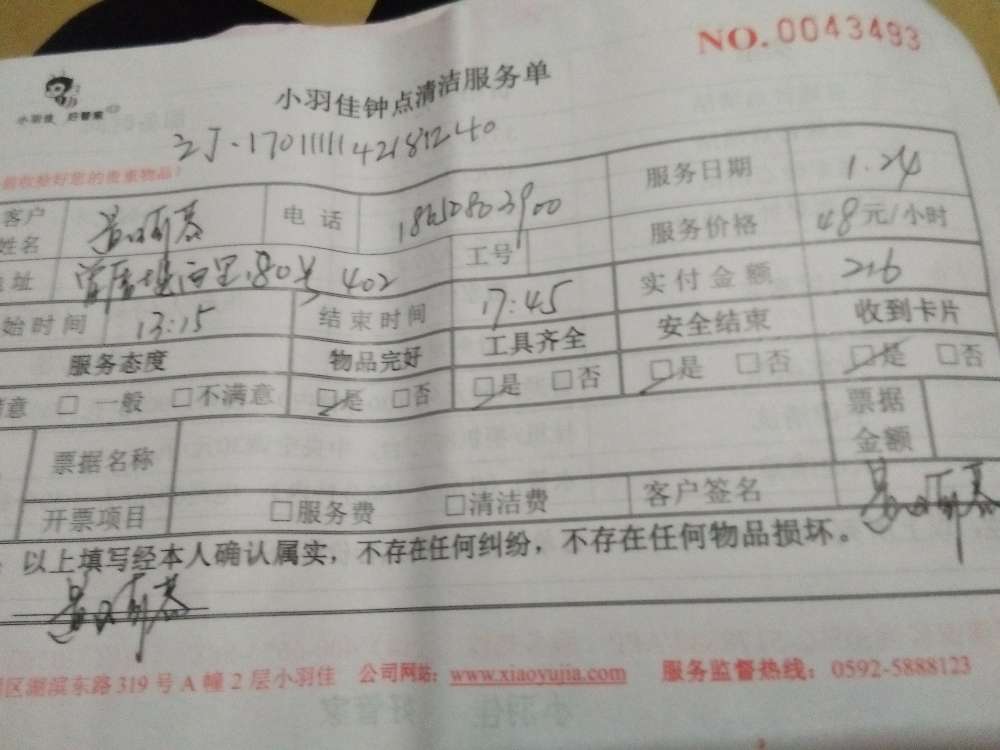 NO.0043493
小羽佳 好管家
小羽佳钟点清洁服务单
1701111142181240
前收拾好您的贵重物品!
客户姓名 电话 18650803900 服务日期 1.24
地址 80号 402 工号 服务价格 48元/小时
始时间 13:15 结束时间 17:45 实付金额 216
服务态度 物品完好 工具齐全 安全结束 收到卡片
意 □ 一般 □不满意 □是 □否 □是 □否 □是 □否 □是 □否
票据名称 票据金额
开票项目 □服务费 □清洁费 客户签名
以上填写经本人确认属实，不存在任何纠纷，不存在任何物品损坏。
区湖滨东路319号A幢2层小羽佳 公司网站：www.xiaoyujia.com 服务监督热线：0592-5888123